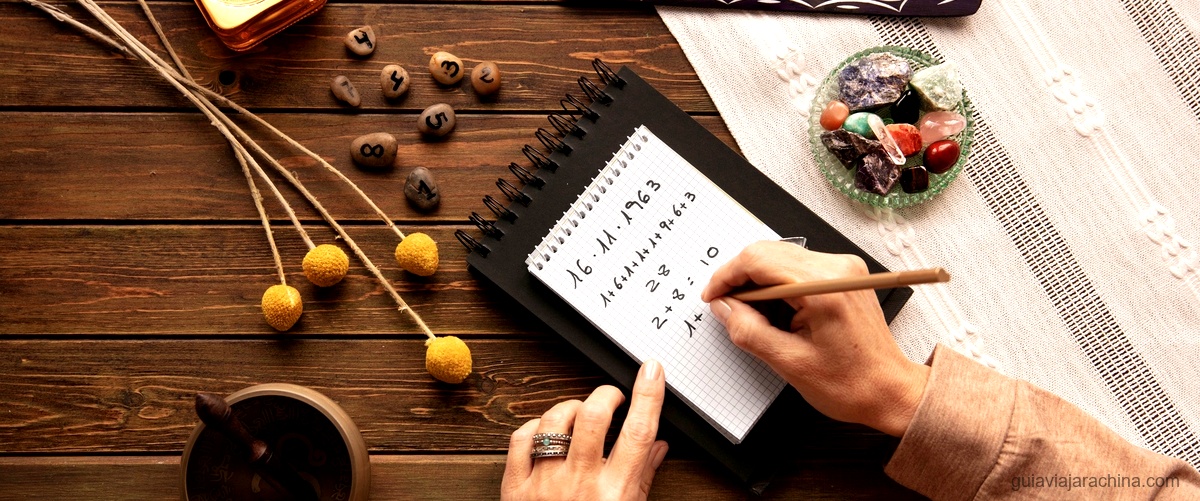 16.11.1963
1+6+1+1+1+9+6+3
28
2+8: 10
1+
4
4
3
5
8
1
guiaviajarachina.com